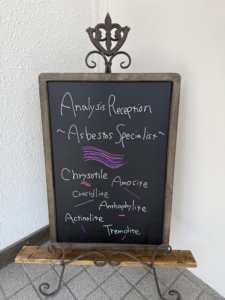 Analysis Reception
~Asbestos Specialist~
Chrysotile
Amosite
Crocidlite
Anthophylite
Actinolite
Tremolite